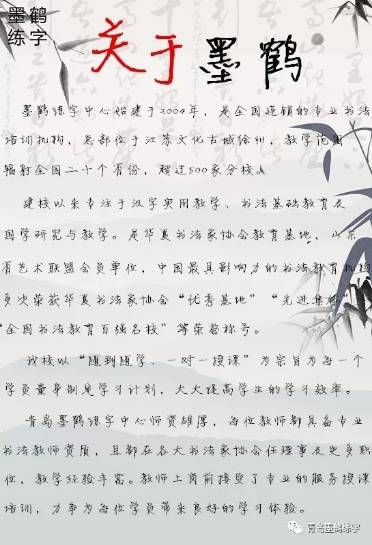 墨鹤
练字
关于墨鹤
墨鹤练字中心始建于2004年，是全国连锁的专业书法
培训机构，总部位于江苏文化古城徐州，教学范围
辐射全国二十个省份，超过500家分校。
建校以来专注于汉字实用教学、书法基础教育及
国学研究与教学。是华夏书法家协会教育基地，山东
省艺术联盟会员单位，中国最具影响力的书法教育机构
更次荣获华夏书法家协会“优秀基地”“先进集体”
“全国书法教育百强名校”等荣誉称号。
我校以“随到随学、一对一授课”为宗旨为每一个
学员量身制定学习计划，大大提高学生的学习效率。
青岛墨鹤练字中心师资雄厚，每位教师都具备专业
书法教师资质，且都在各大书法家协会任理事及更多职
位，教学经验丰富。教师上岗前接受了专业的服务授课
培训，力争为每位学员带来良好的学习体验。
青岛墨鹤练字